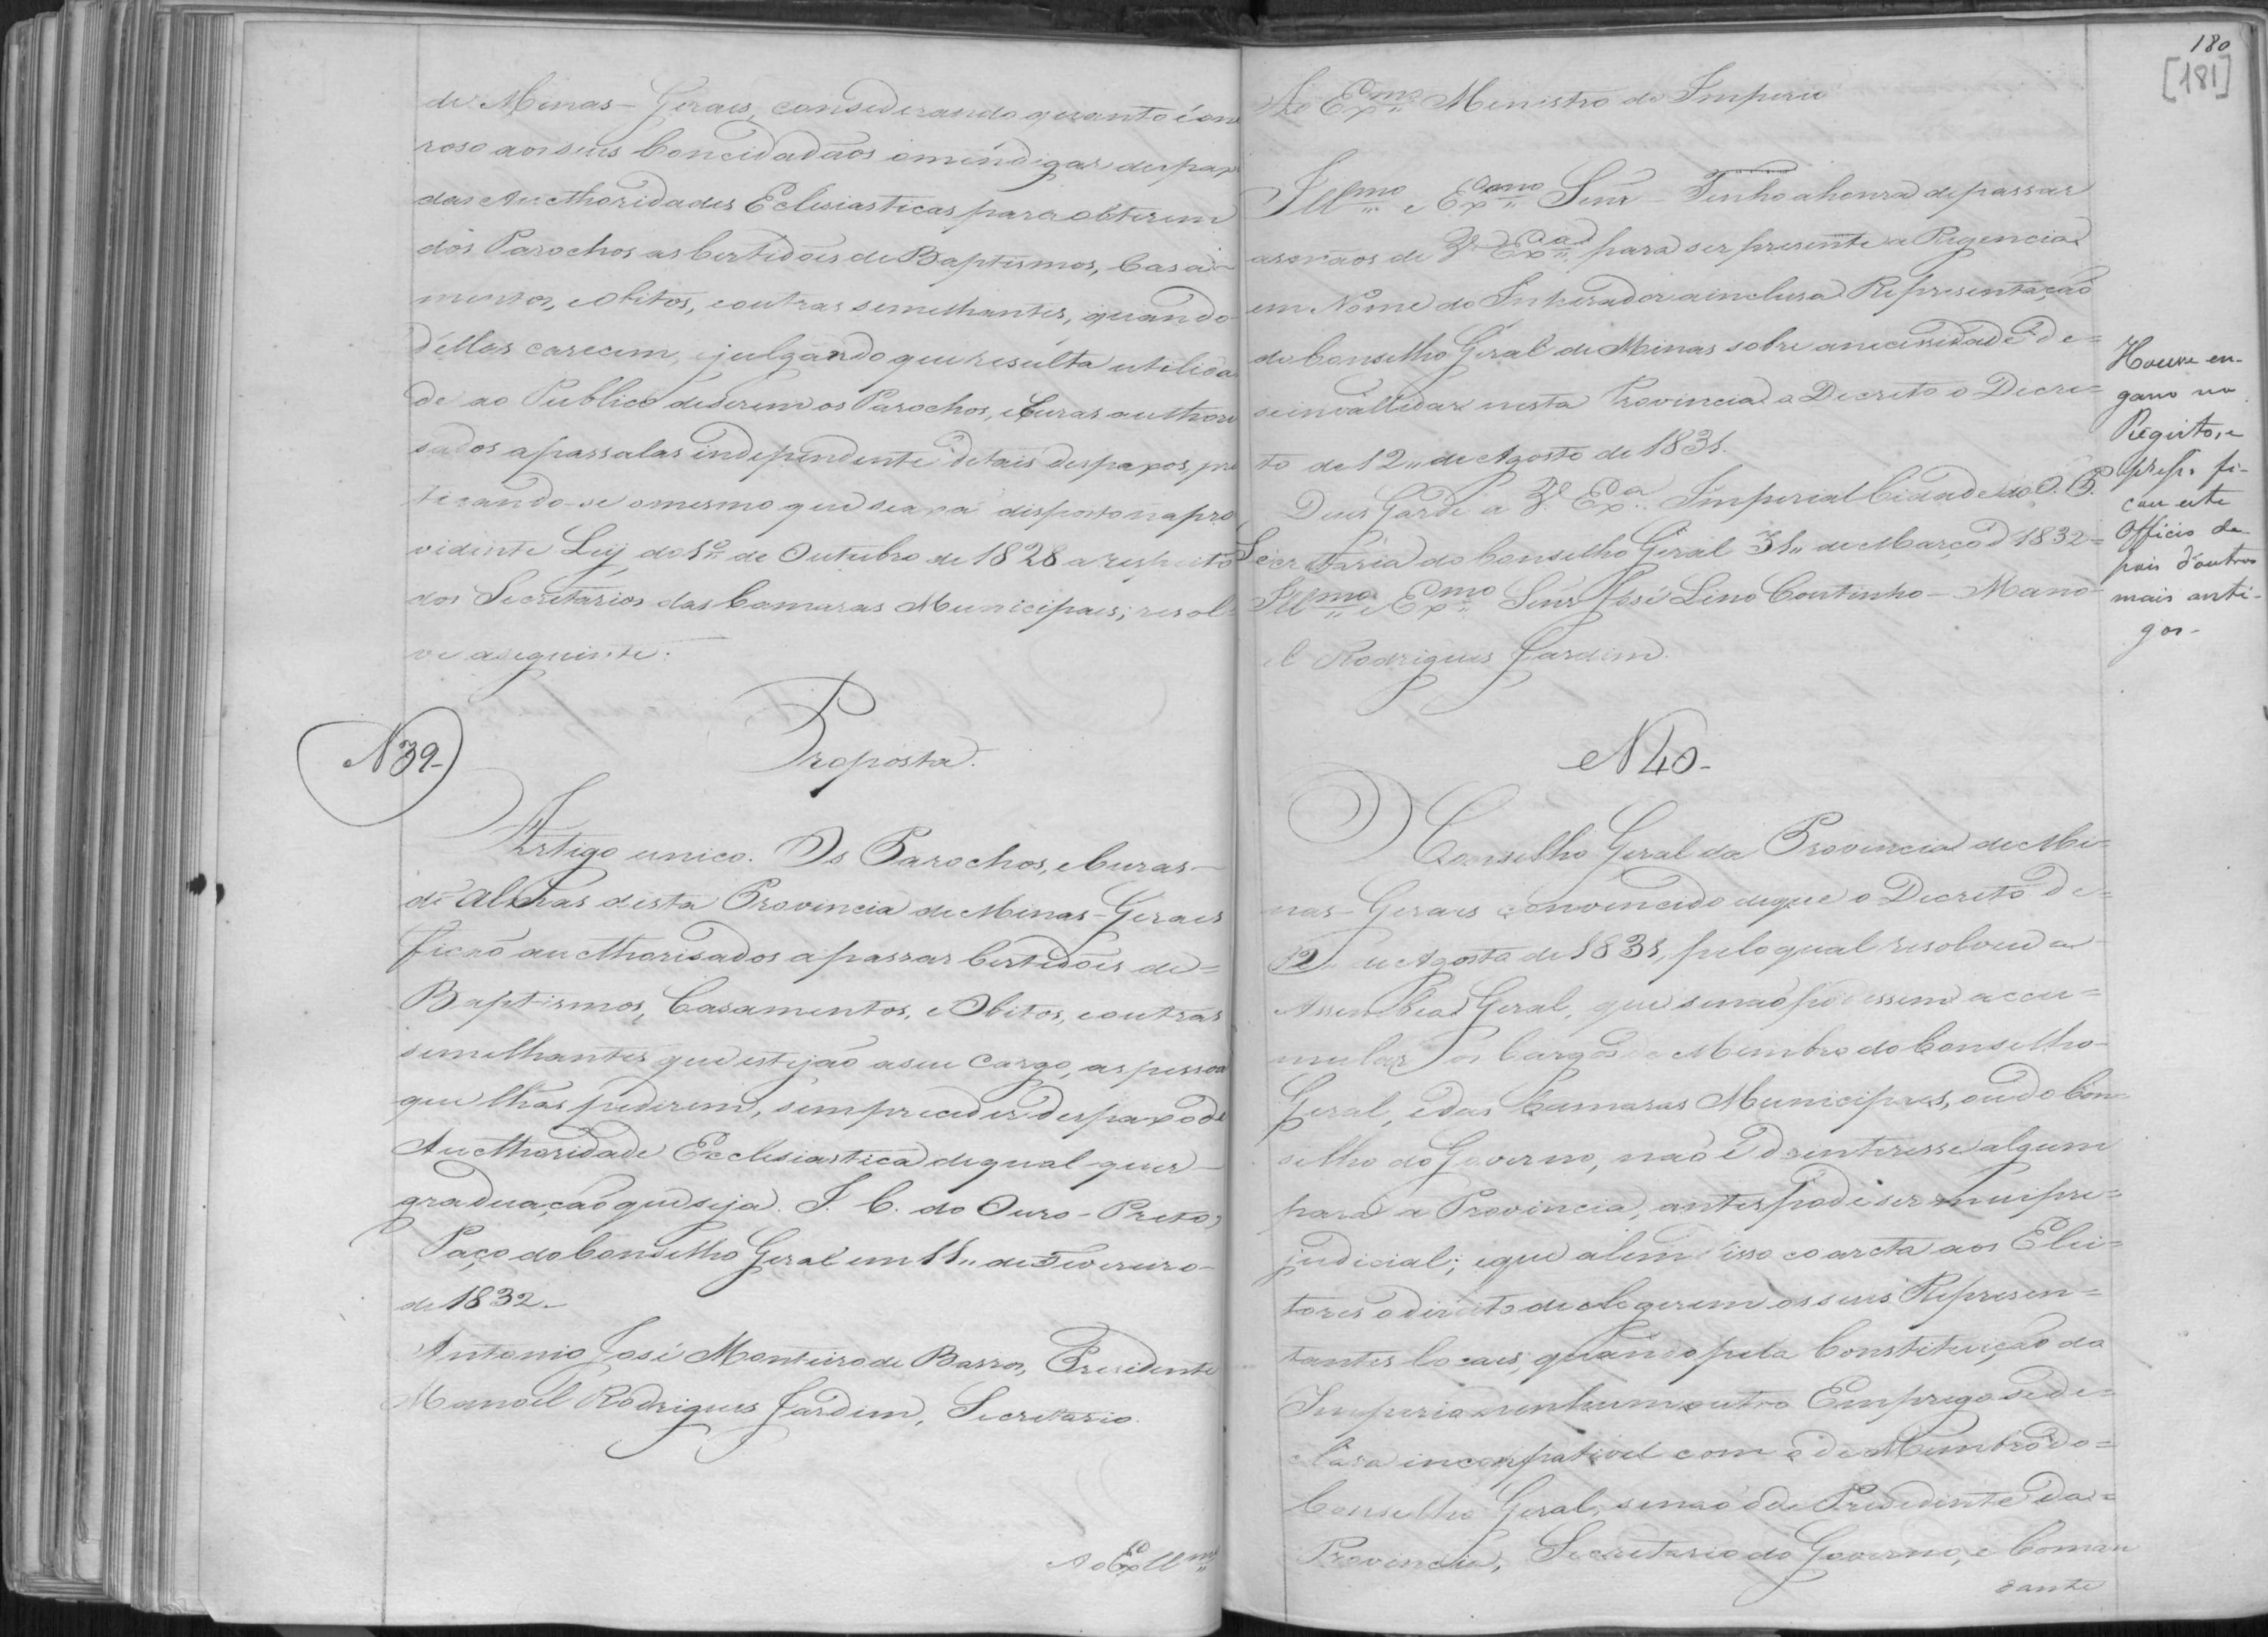 de Minas-Geraes, considerando quanto é one
roso aos seus Concidadãos o mendigar despax
das Aucthoridades Eclesiasticas para obterem
dos Parochos as Certidões de Baptismos, Casa-
mentos, e Obitos, e outras semelhantes, quando
d'ellas carecem, e julgando que resulta utilida
de ao Publico de serem os Parochos, e Curas authori
sados a passalas independente de taes despaxos, pra
ticando-se o mesmo que se axa disposto na pro
vidente Ley do 1º de Outubro de 1828 a respeito
dos Secretarios das Camaras Municipaes; resol-
ve a seguinte:
N 39-
Proposta.
Artigo unico. Os Parochos, e Curas-
de Almas desta Provincia de Minas-Geraes
ficão aucthorisados a passar Certidões de=
Baptismos, Casamentos, e Obitos, e outras
semelhantes que estejão a seu cargo, as pessoa
que lhas pedirem, sem preceder despaxo de
Aucthoridade Ecclesiastica de qual-quer-
graduação que seja. I. C. do Ouro-Preto,
Paço do Conselho Geral em 11,, de Fevereiro-
de 1832.-
Antonio José Monteiro de Barros, Presidente
Manoel Rodrigues Jardim, Secretario.
Ao Exllmo
180
[181]
Ao Exmo Ministro do Imperio
Illmo e Exmo Senr - Tenho a honra de passar
as mãos de V. Exa para ser presente a Regencia
em Nome do Imperador a inclusa Representação
do Conselho Geral de Minas sobre a necessidade de=
se invallidar nesta Provincia a Decreto o Decre-
to de 12,, de Agosto de 1831.
Deus Garde a V. Exa. Imperial Cidade do O. P.
Secretaria do Conselho Geral 31,, de Março d 1832=
Illmo e Exmo Senr José Lino Coutinho - Mano-
el Rodrigues Jardim.
Houve en-
gano no
Registo, e
pr isso fi-
cou este
Officio de
pois d'outros
mais anti-
gos-
N 40-
O Conselho Geral da Provincia de Mi-
nas-Geraes convencido de que o Decreto de=
12,, de Agosto de 1831, pelo qual resolveu a
Assemblea Geral, que se não podessem accu=
mular os Cargos de Membro do Conselho-
Geral, e das Camaras Municipaes, ou do Con-
selho do Governo, não é de interesse algum
para a Provincia, antes pode ser mui pre=
judicial; e que alem d'isso coarcta aos Elei=
tores o direito de elegerem os seus Represen=
tantes locaes, quando pela Constituição do
Imperio nenhum outro Emprego se de=
clara incompativel com o de Membro do=
Conselho Geral, senão o de Presidente da=
Provincia, Secretario do Governo, e Coman
dante